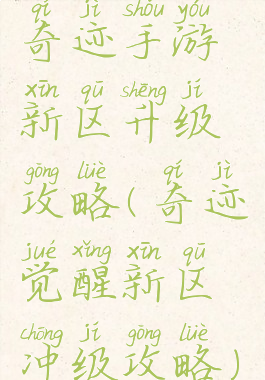 qí jì shǒu yóu
奇迹手游
xīn qū shēng jí
新区升级
gōng lüè qí jì
攻略(奇迹
jué xǐng xīn qū
觉醒新区
chōng jí gōng lüè
冲级攻略)